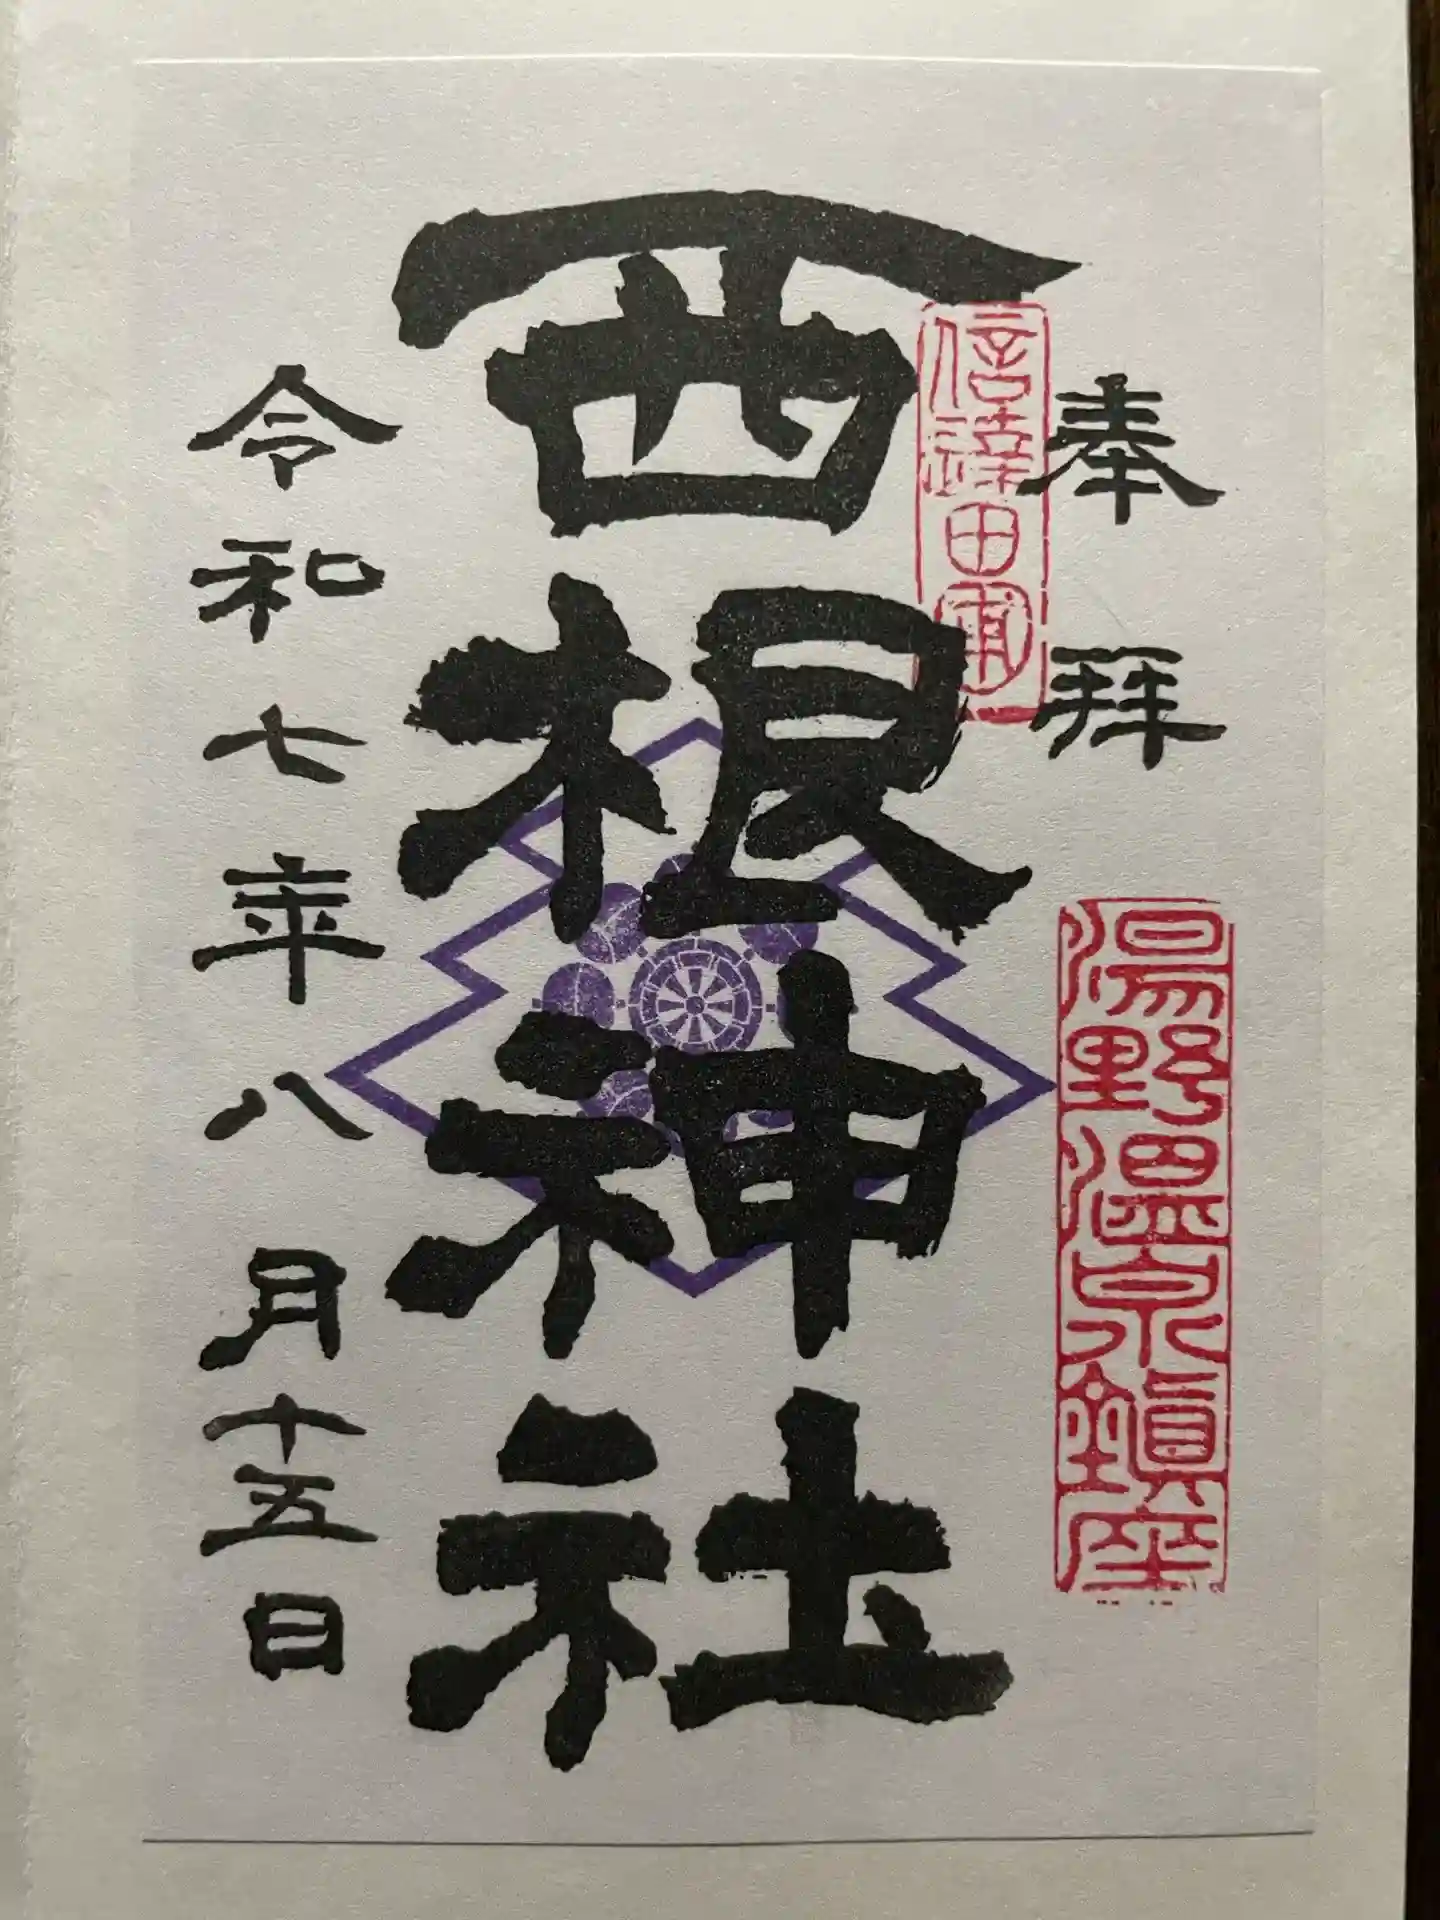 奉拜
信達田甫
湯野温泉鎮座
西根神社
令和七年八月十五日